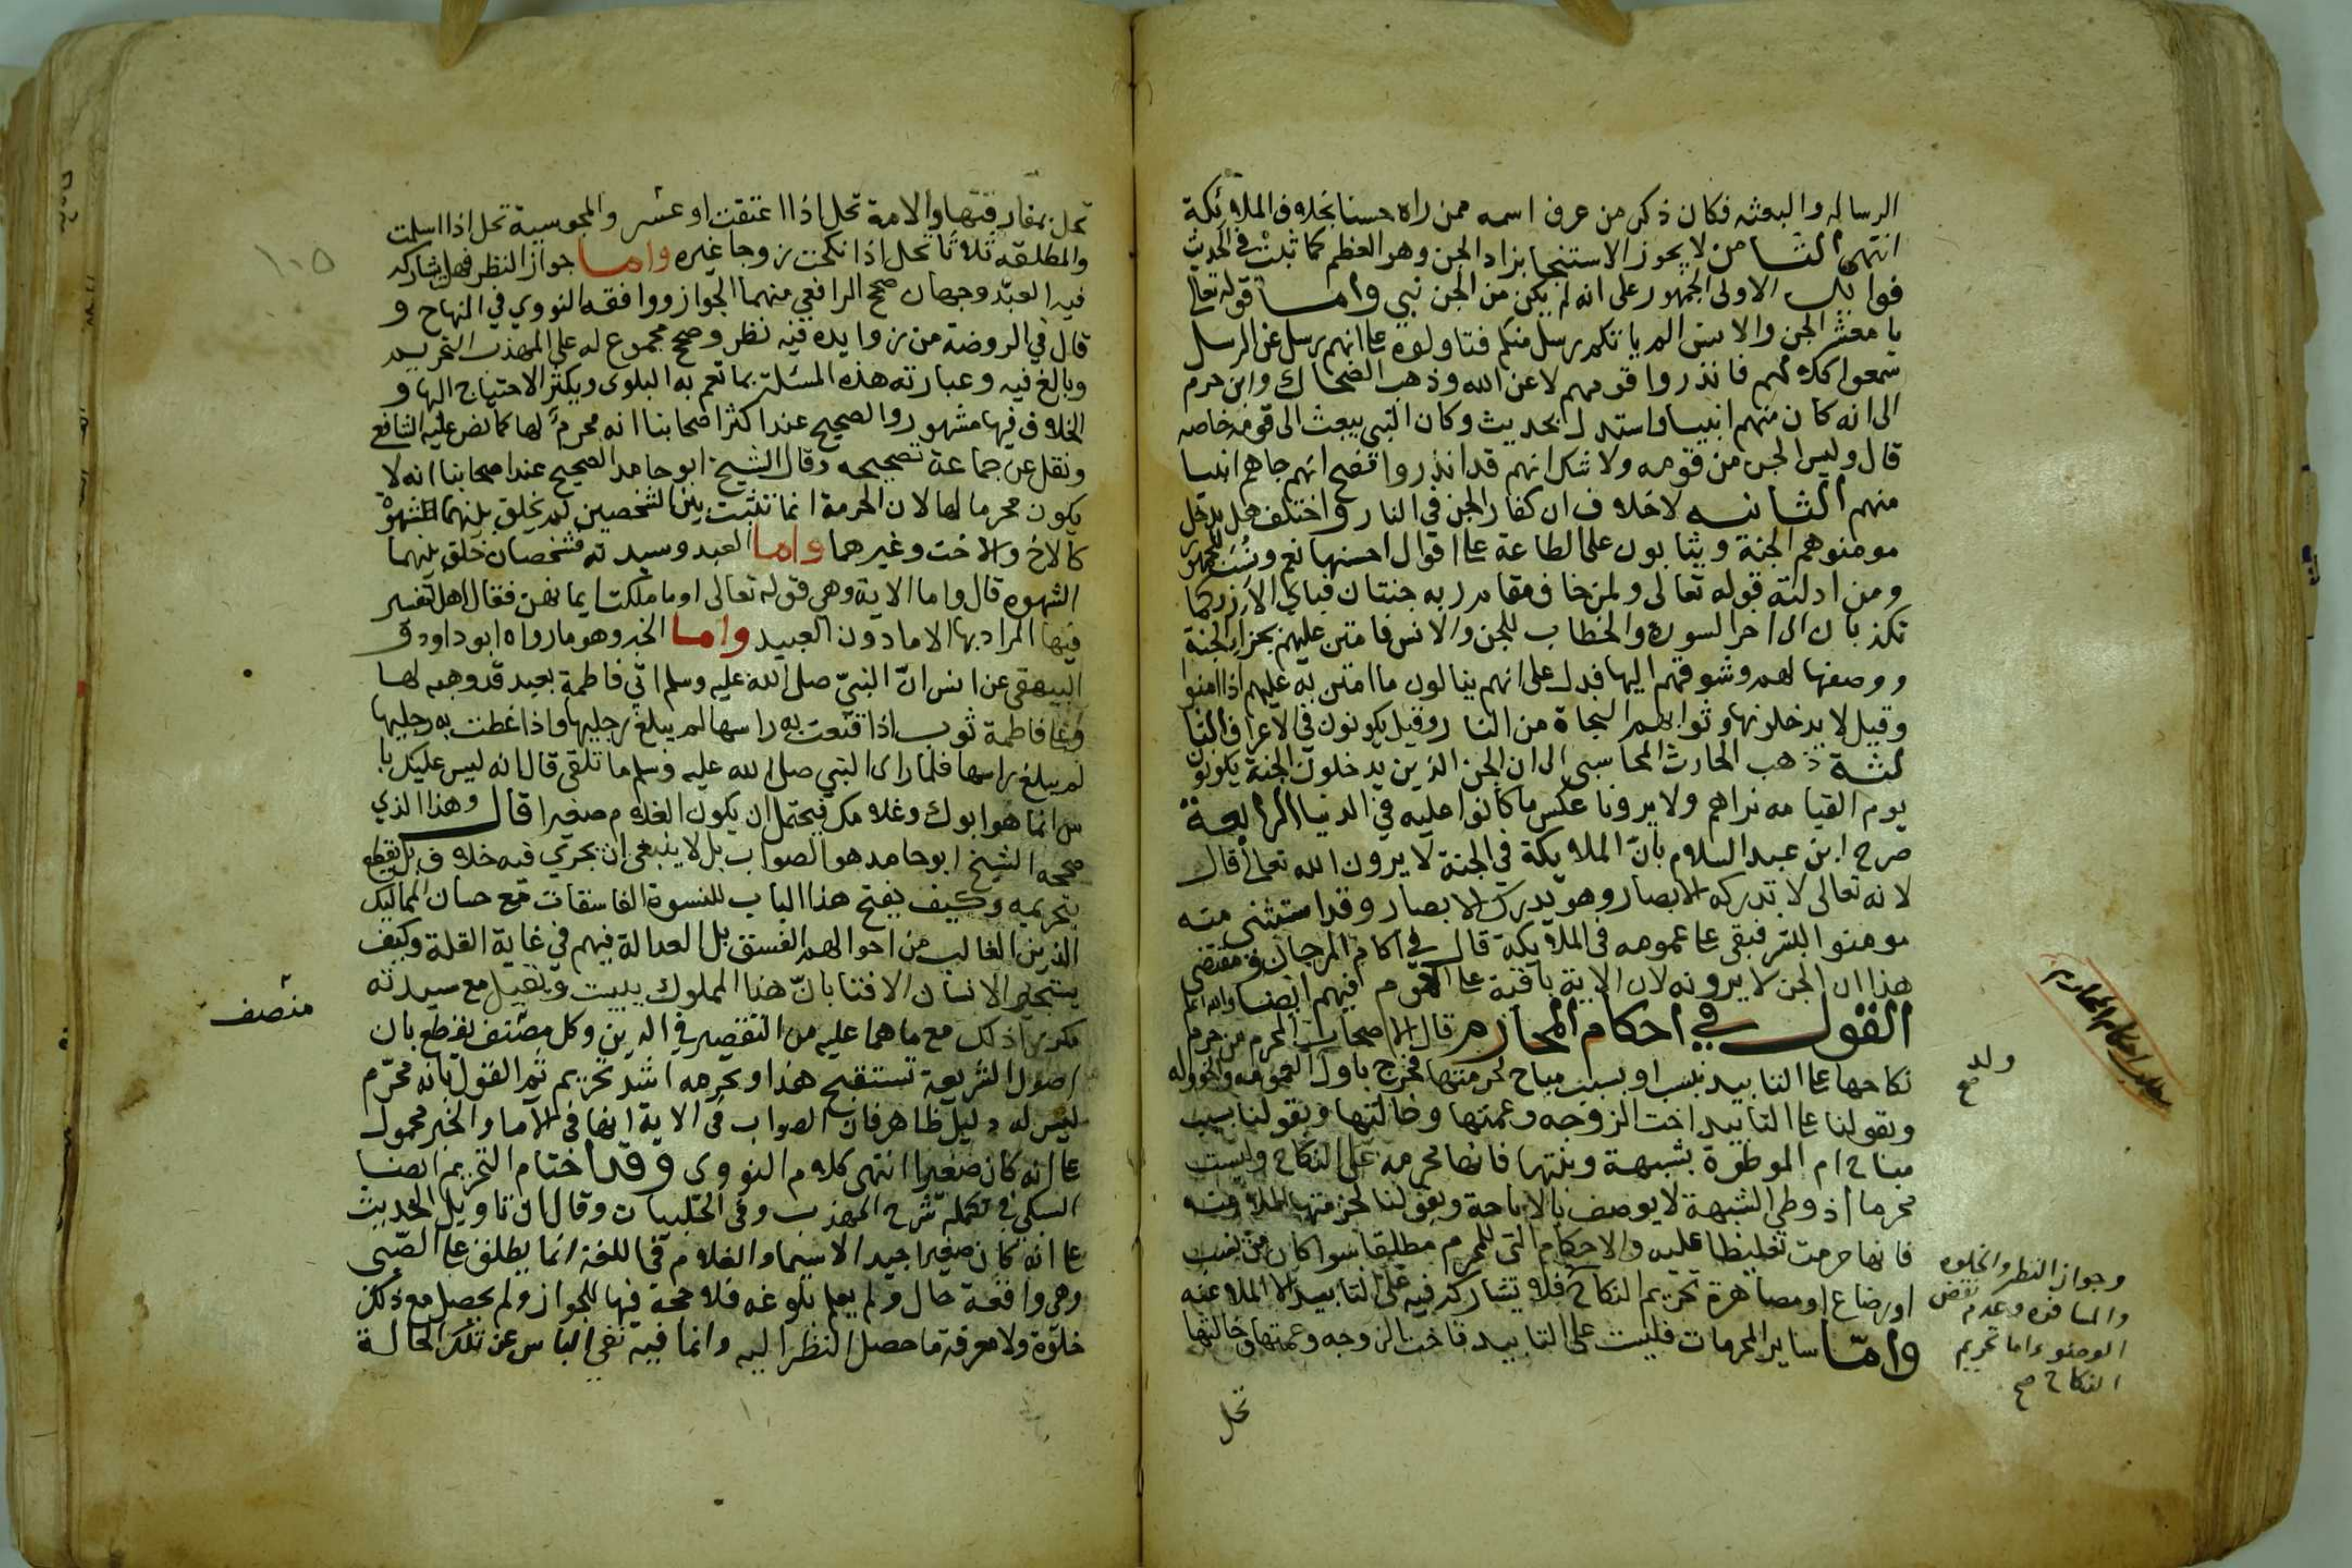 الرساله والبعثه فكان ذكر من عرف اسمه ممن راه حسنا بخلاف الملائكة
انتهى الثامن لا يجوز الاستنجا بزاد الجن وهو العظم كما ثبت في الحديث
فوايد الاولى الجمهور على انه لم يكن من الجن نبي واما قوله تعالى
يا معشر الجن والانس الم ياتكم رسل منكم فتاولوه على انهم رسل عن الرسل
سمعوا كلامهم فانذروا قومهم لا عن الله وذهب الضحاك وابن حزم
الى انه كان منهم انبيا واستدل بحديث وكان النبي يبعث الى قومه خاصه
قال وليس الجن من قومه ولا شك انهم قد انذروا فصح انهم جاهم انبيا
منهم الثانيه لا خلاف ان كفار الجن في النار واختلف هل يدخل
مومنوهم الجنة ويثابون على الطاعة على اقوال احسنها نعم ونسب للجمهور
ومن ادلته قوله تعالى ولمن خاف مقام ربه جنتان فباي الاء ربكما
تكذبان الى اخر السوره والخطاب للجن والانس فامتن عليهم بجزا الجنة
ووصفها لهم وشوقهم اليها فدل على انهم ينالون ما امتن به عليهم اذا امنوا
وقيل لا يدخلونها وثوابهم النجاة من النار وقيل يكونون في الاعراف الثا
لثة ذهب الحارث المحاسبي الى ان الجن الذين يدخلون الجنة يكونون
يوم القيامه نراهم ولا يرونا عكس ما كانوا عليه في الدنيا الرابعة
صرح ابن عبد السلام بأنّ الملايكة في الجنة لا يرون الله تعالى قال
لانه تعالى لا تدركه الابصار وهو يدرك الابصار وقد استثنى منه
مومنوا البشر فبقى على عمومه في الملايكة قال في اكام المرجان ومقتضى
هذا ان الجن لا يرونه لان الاية باقية على العموم فيهم ايضا والله اعلم
القول في احكام المحارم قال الاصحاب المحرم من حرم
نكاحها على التابيد بنسب او بسبب مباح لحرمتها فخرج باول العمومه والخووله
وبقولنا على التابيد اخت الزوجه وعمتها وخالتها وبقولنا بسبب
مباح ام الموطوة بشبهة وبنتها فانها محرمه على النكاح وليست
محرما اذ وطي الشبهة لا يوصف بالاباحة وبقولنا لحرمتها الملاعنه
فانها حرمت تغليظا عليه والاحكام التي للمحرم مطلقا سوا كان من نسب
او رضاع او مصاهرة تحريم النكاح فلا يشاركه فيه على التابيد الا الملاعنه
وامّا ساير المحرمات فليست على التابيد فاخت الزوجه وعمتها وخالتها
تحل
ولد
صح
وجواز النظر والخلوه
والمسافره وعدم نقض
الوضوء اما تحريم
النكاح صح
تحل بمفارقتها والامة تحل اذا اعتقت او عشر والمجوسية تحل اذا اسلمت
والمطلقه ثلاثا تحل اذا نكحت زوجا غيره واما جواز النظر فهل يشاركه
فيه العبد وجهان صحح الرافعي منهما الجواز ووافقه النووي في المنهاج و
قال في الروضة من زوايده فيه نظر وصحح مجموع له على المهذب التحريم
وبالغ فيه وعبارته هذه المسئلة بما تعم به البلوى ويكثر الاحتياج اليها و
الخلاف فيها مشهور والصحيح عند اكثر اصحابنا انه محرم لها كما نص عليه الشافعي
ونقل عن جماعة تصحيحه وقال الشيخ ابو حامد الصحيح عند اصحابنا انه لا
يكون محرما لها لان الحرمة انما تثبت بين شخصين لم يخلق بينهما الشهوة
كالاخ والاخت وغيرهما واما العبد وسيدته فشخصان خلق بينهما
الشهوه قال واما الاية وهي قوله تعالى او ما ملكت ايمانهن فقال اهل تفسير
فيها المراد بها الاما دون العبيد واما الخبر وهو ما رواه ابو داود و
البيهقي عن انس انّ النبيّ صلى الله عليه وسلم اتى فاطمة بعبد قد وهبه لها
وعلى فاطمة ثوب اذا قنعت به راسها لم يبلغ رجليها واذا غطت به رجليها
لم يبلغ راسها فلما راى النبي صلى الله عليه وسلم ما تلقى قال انه ليس عليك با
س انما هو ابوك وغلامك فيحتمل ان يكون الغلام صغيرا قال وهذا الذي
صححه الشيخ ابو حامد هو الصواب بل لا ينبغي ان يجري فيه خلاف بل يقطع
بتحريمه وكيف يفتح هذا الباب للنسوة الفاسقات مع حسان المماليك
الذين الغالب من احوالهم الفسق بل العدالة فيهم في غاية القلة وكيف
يستجيز الانسان الافتا بانّ هذا المملوك يبيت ويقيل مع سيدته
مكررا ذلك مع ما هما عليه من التقصير في الدين وكل مصنف يقطع بان
اصول الشريعة تستقبح هذا وتحرمه اشد تحريم ثم القول بانه محرّم
ليس له دليل ظاهر فان الصواب في الاية انها في الاما والخبر محمول
على انه كان صغيرا انتهى كلام النووي وقد اختام التحريم ايضا
السبكي في تكملة شرح المهذب وفي الحلبيات وقال ان تاويل الحديث
على انه كان صغيرا جيد لا سيما والغلام في اللغة انما يطلق على الصّبي
وهى واقعة حال ولم يعلم بلوغه فلا حجة فيها للجواز ولم يحصل مع ذلك
خلوة ولا معرفة ما حصل النظر اليه وانما فيه نفي الباس عن تلك الحالة
منصف
١٠٥